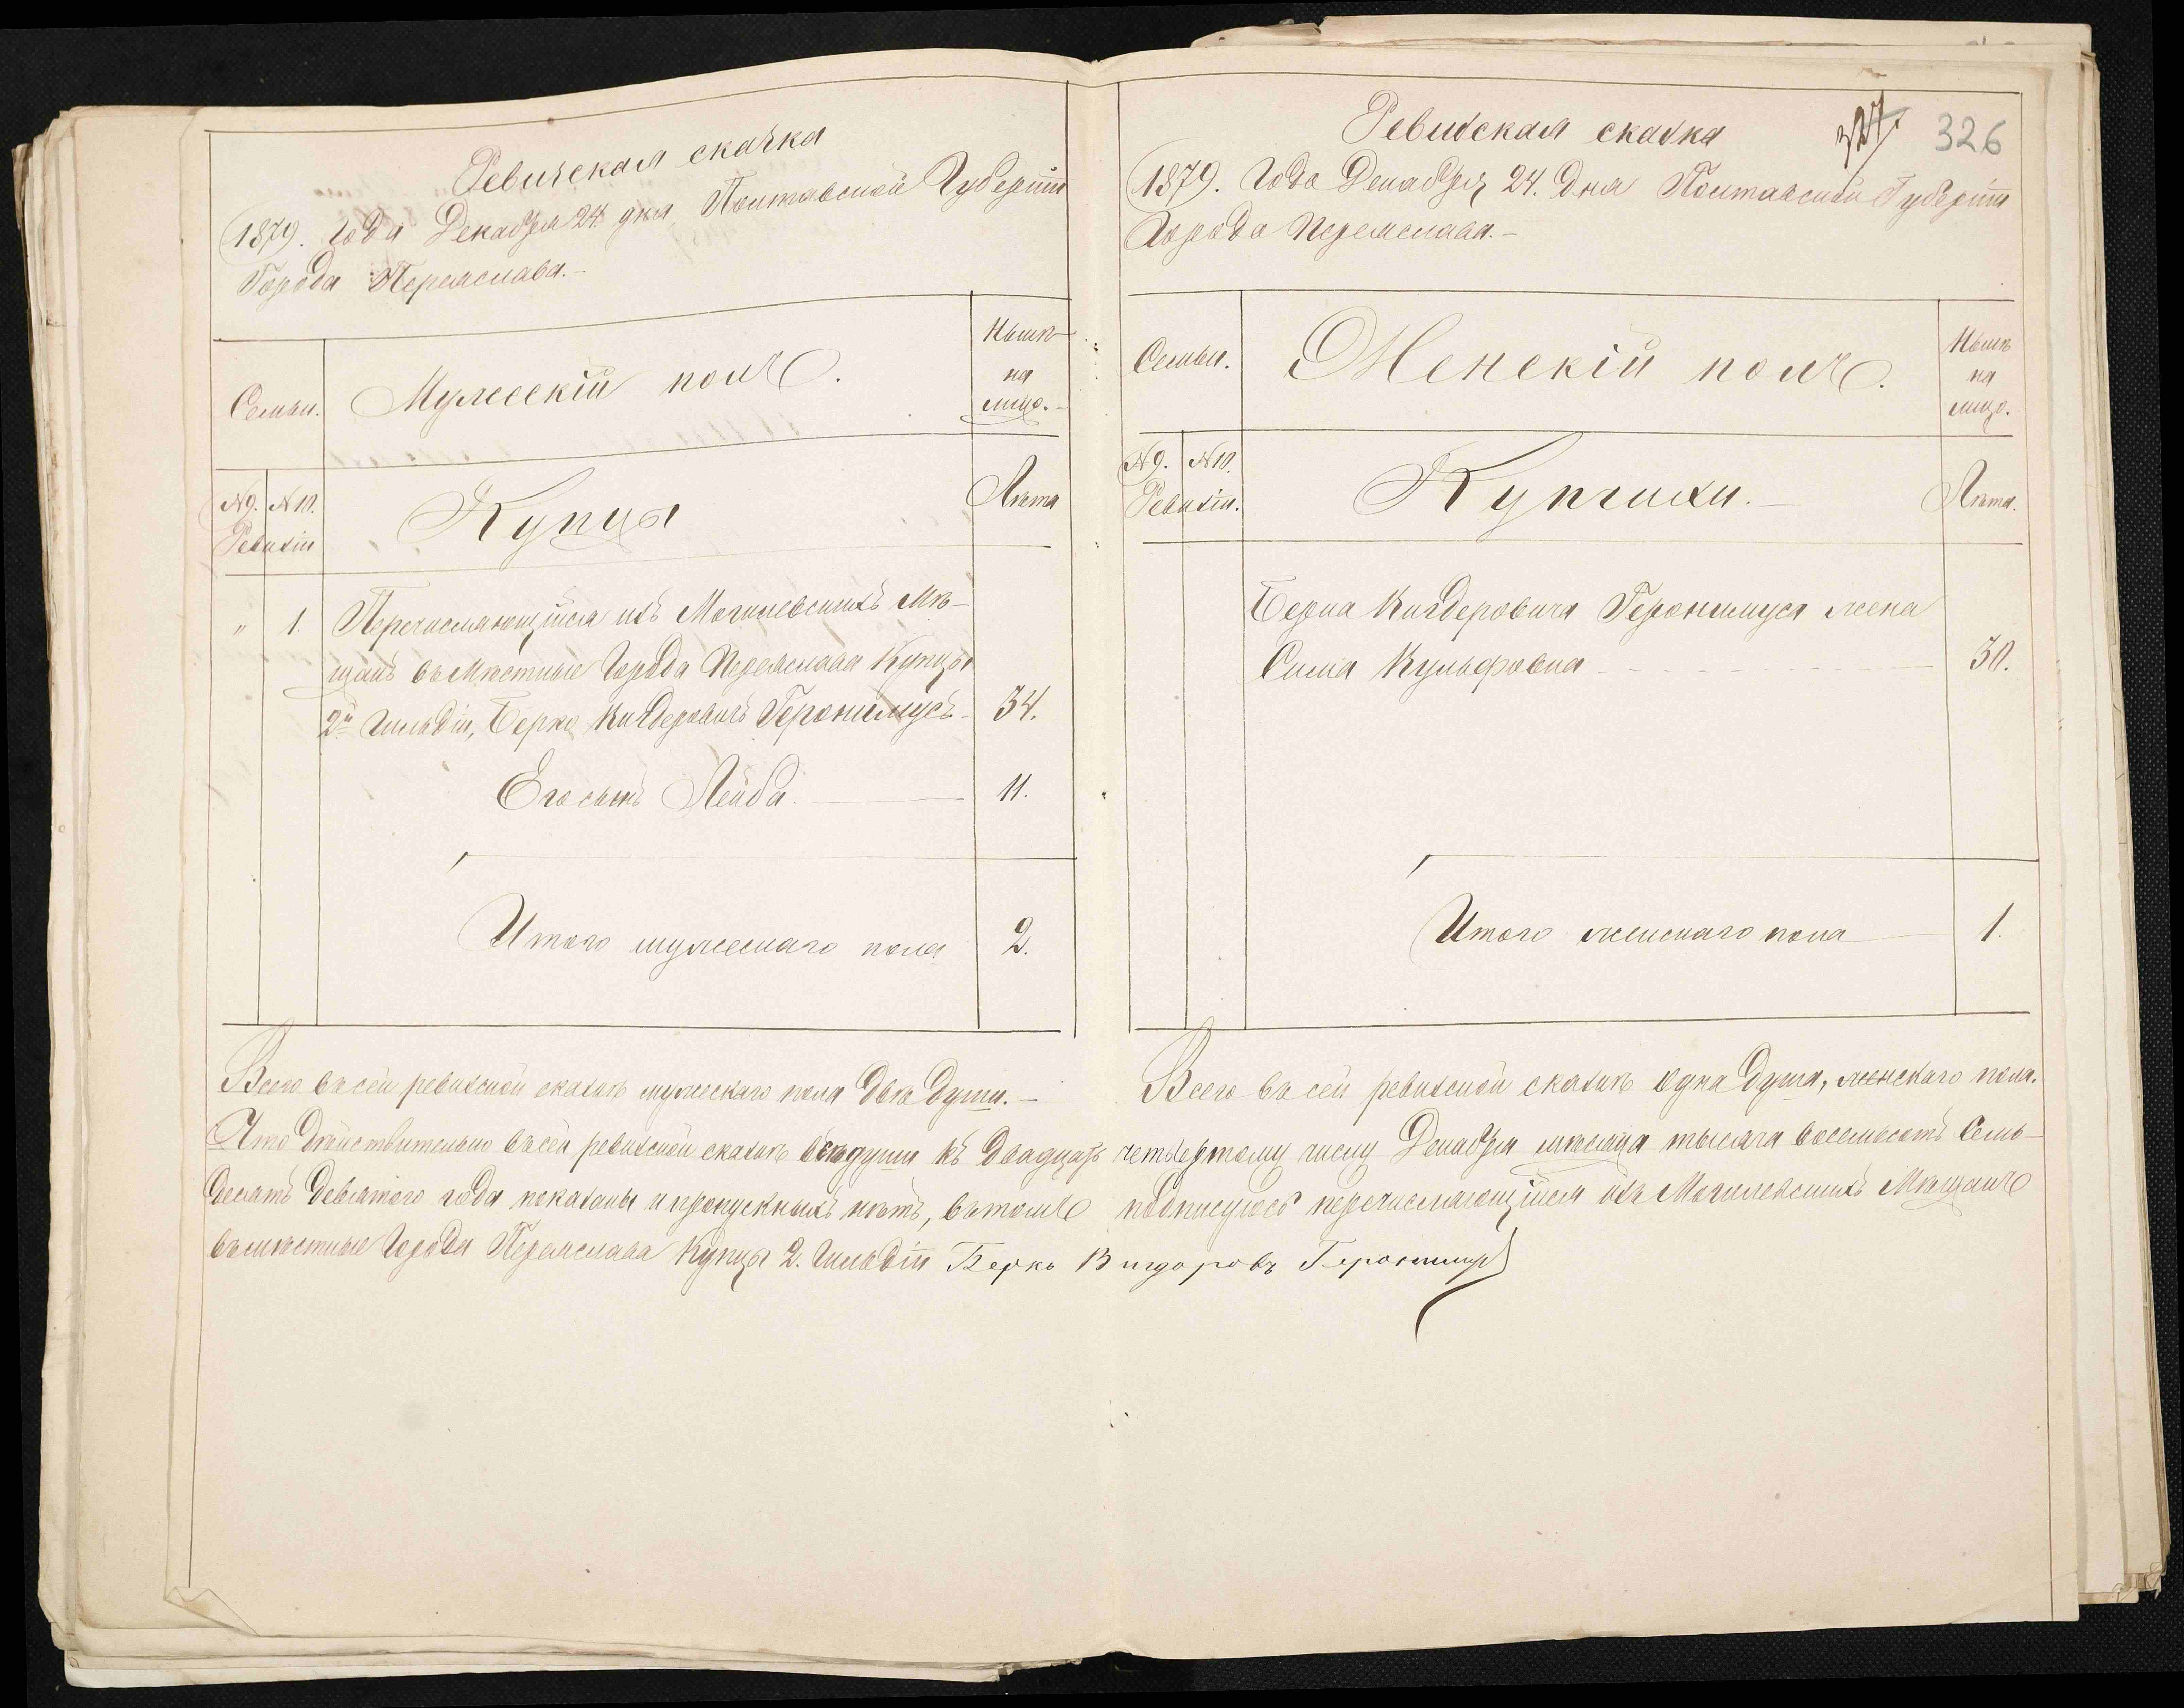 Ревизская сказка
1879. Года Декабря 24 дня Полтавской Губернiи
Города Переяслава.–
Семьи.
Мужескiй полъ.
Нынѣ
на
лицо.–
№ 9. № 10.
Ревизiи
Купцы
Лѣта
" 1. Перечисляющiйся изъ Могилевскихъ Мѣ–
щанъ въ Мѣстные Города Переяслава Купцы
2й Гильдiи, Берко Вигдоровичъ Геронимусъ – 34.
Его сынъ Лейба. — 11.
Итого мужескаго пола 2.
Всего въ сей ревизской сказкѣ мужескаго пола двѣ души. –
327. 326
Ревизская сказка
1879. Года Декабря 24. Дня Полтавской Губернiи
Города Переяслава.–
Семьи.
Женскiй полъ.
Нынѣ
на
лицо.
№ 9. № 10.
Ревизiи.
Купчихи.–
Лѣта.
Берка Вигдоровича Геронимуса жена
Сима Кульфовна – 30.
Итого женскаго пола — 1.
Всего въ сей ревизской сказкѣ одна душа, женскаго пола.
Что дѣйствительно въ сей ревизской сказкѣ всѣ души къ двадцать четвертому числу Декабря мѣсяца тысяча восемьсотъ Семь–
десятъ девятого года показаны и пропускныхъ нѣтъ, въ томъ подписуюсь перечисляющiйся изъ Могилевскихъ Мѣщанъ
въ мѣстные Города Переяслава Купцы 2. Гильдiи Берко Вигдоровъ Геронимус